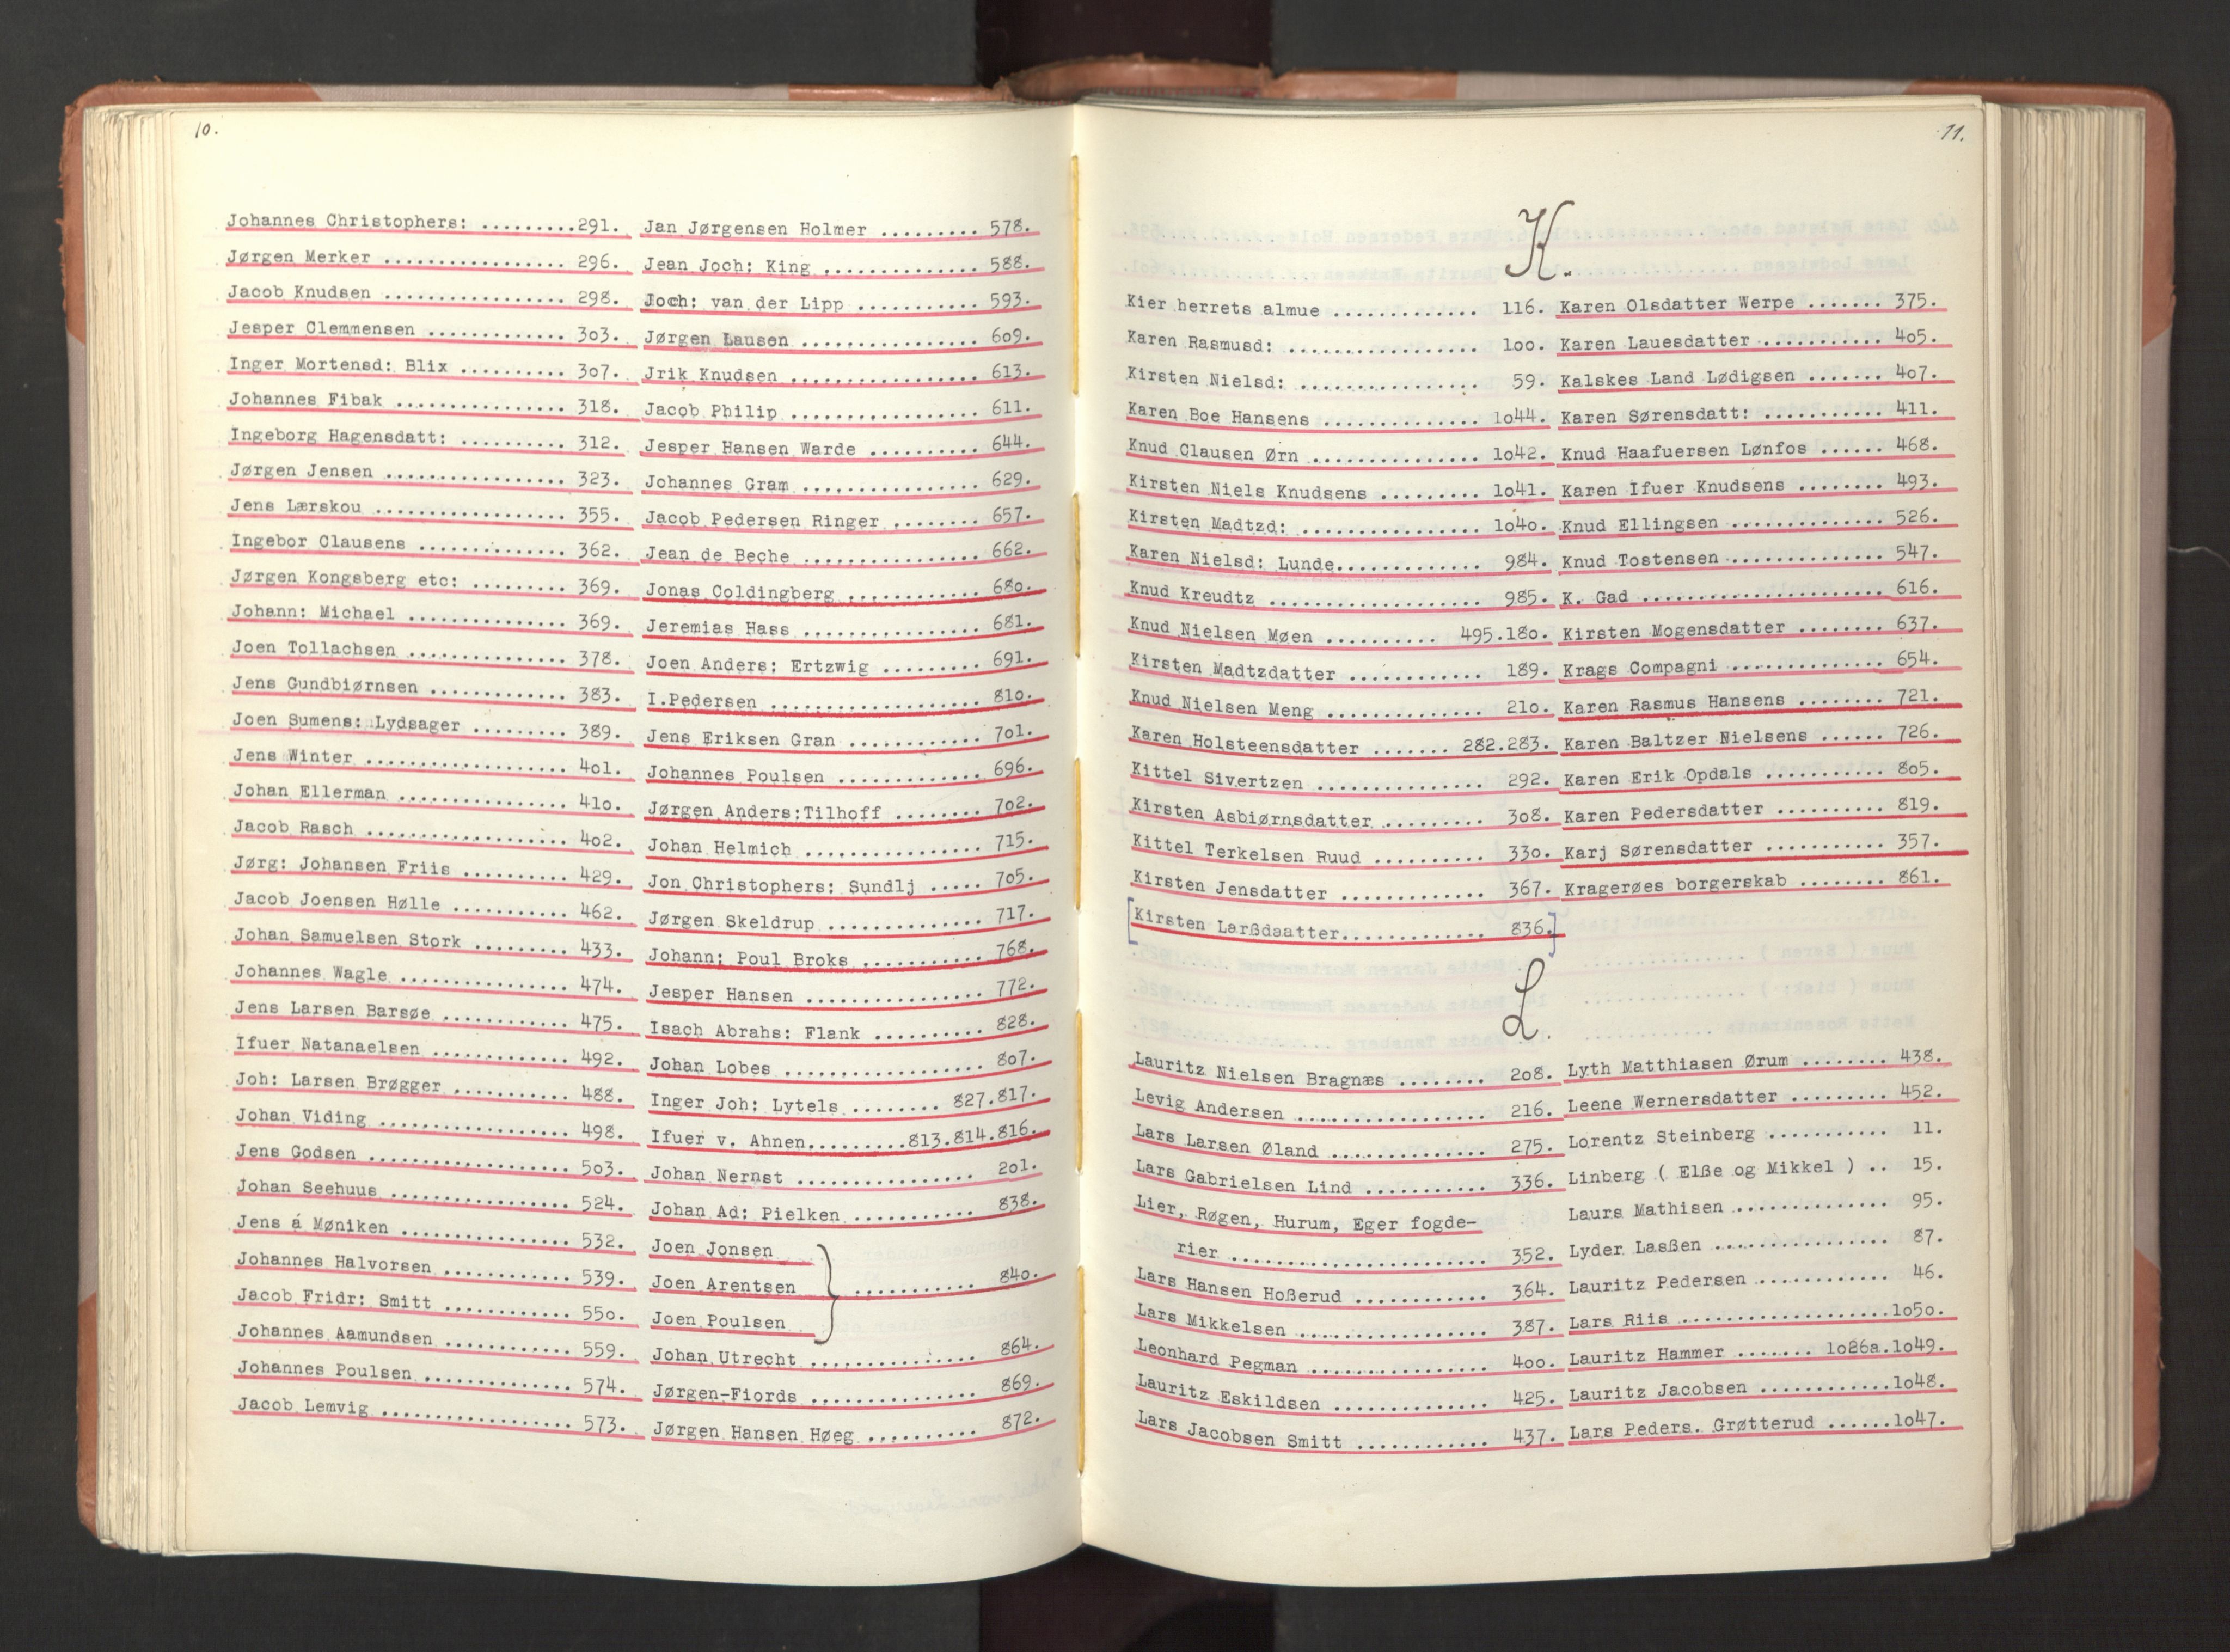 10.
Johannes Christophers: .........291.
Jørgen Merker ................. 296.
Jacob Knudsen ................. 298.
Jesper Clemmensen ............. 303.
Inger Mortensd: Blix .......... 307.
Johannes Fibak ................ 318.
Ingeborg Hagensdatt: .......... 312.
Jørgen Jensen ................. 323.
Jens Lærskou .................. 355.
Ingebor Clausens .............. 362.
Jørgen Kongsberg etc: ......... 369.
Johann: Michael ............... 369.
Joen Tollachsen ............... 378.
Jens Gundbiørnsen ............. 383.
Joen Sumens: Lydsager ......... 389.
Jens Winter ................... 401.
Johan Ellerman ................ 410.
Jacob Rasch ................... 402.
Jørg: Johansen Friis .......... 429.
Jacob Joensen Hølle ........... 462.
Johan Samuelsen Stork ......... 433.
Johannes Wagle ................ 474.
Jens Larsen Barsøe ............ 475.
Ifuer Natanaelsen ............. 492.
Joh: Larsen Brøgger ........... 488.
Johan Viding .................. 498.
Jens Godsen ................... 503.
Johan Seehuus ................. 524.
Jens á Møniken ................ 532.
Johannes Halvorsen ............ 539.
Jacob Fridr: Smitt ............ 550.
Johannes Aamundsen ............ 559.
Johannes Poulsen .............. 574.
Jacob Lemvig .................. 573.
Jan Jørgensen Holmer ......... 578.
Jean Joch: King .............. 588.
Joch: van der Lipp ........... 593.
Jørgen Lausen ................ 609.
Jrik Knudsen ................. 613.
Jacob Philip ................. 611.
Jesper Hansen Warde .......... 644.
Johannes Gram ................ 629.
Jacob Pedersen Ringer ........ 657.
Jean de Beche ................ 662.
Jonas Coldingberg ............ 680.
Jeremias Hass ................ 681.
Joen Anders: Ertzwig ......... 691.
I.Pedersen ................... 810.
Jens Eriksen Gran ............ 701.
Johannes Poulsen ............. 696.
Jørgen Anders:Tilhoff ........ 702.
Johan Helmich ................ 715.
Jon Christophers: Sundlj ..... 705.
Jørgen Skeldrup .............. 717.
Johann: Poul Broks ........... 768.
Jesper Hansen ................ 772.
Isach Abrahs: Flank .......... 828.
Johan Lobes .................. 807.
Inger Joh: Lytels ........ 827.817.
Ifuer v. Ahnen.........813.814.816.
Johan Nernst ................ 201.
Johan Ad: Pielken ........... 838.
Joen Jonsen
Joen Arentsen } ........... 840.
Joen Poulsen
Johan Utrecht ............... 864.
Jørgen-Fiords ............... 869.
Jørgen Hansen Høeg .......... 872.
11.
K.
Kier herrets almue ............. 116.
Karen Rasmusd: ................. 100.
Kirsten Nielsd: ................ 59.
Karen Boe Hansens .............. 1044.
Knud Clausen Ørn ............... 1042.
Kirsten Niels Knudsens ......... 1041.
Kirsten Madtzd: ................ 1040.
Karen Nielsd: Lunde............. 984.
Knud Kreudtz ................... 985.
Knud Nielsen Møen .......... 495.180.
Kirsten Madtzdatter ............ 189.
Knud Nielsen Meng .............. 210.
Karen Holsteensdatter ....... 282.283.
Kittel Sivertzen ............... 292.
Kirsten Asbiørnsdatter ......... 308.
Kittel Terkelsen Ruud .......... 330.
Kirsten Jensdatter ............. 367.
[Kirsten Larßdaatter............. 836.]
Karen Olsdatter Werpe ....... 375.
Karen Lauesdatter ........... 405.
Kalskes Land Lødigsen ....... 407.
Karen Sørensdatt: ........... 411.
Knud Haafuersen Lønfos ...... 468.
Karen Ifuer Knudsens ........ 493.
Knud Ellingsen .............. 526.
Knud Tostensen .............. 547.
K. Gad ...................... 616.
Kirsten Mogensdatter ........ 637.
Krags Compagni .............. 654.
Karen Rasmus Hansens ........ 721.
Karen Baltzer Nielsens ...... 726.
Karen Erik Opdals ........... 805.
Karen Pedersdatter .......... 819.
Karj Sørensdatter ........... 357.
Kragerøes borgerskab ........ 861.
L.
Lauritz Nielsen Bragnæs ........ 208.
Levig Andersen ................. 216.
Lars Larsen Øland .............. 275.
Lars Gabrielsen Lind ........... 336.
Lier, Røgen, Hurum, Eger fogde-
rier ....................... 352.
Lars Hansen Hoßerud ............ 364.
Lars Mikkelsen ................. 387.
Leonhard Pegman ................ 400.
Lauritz Eskildsen .............. 425.
Lars Jacobsen Smitt ............ 437.
Lyth Matthiasen Ørum ........ 438.
Leene Wernersdatter ......... 452.
Lorentz Steinberg ........... 11.
Linberg ( Elße og Mikkel ) .. 15.
Laurs Mathisen .............. 95.
Lyder Laſßen ................ 87.
Lauritz Pedersen ............ 46.
Lars Riis ...................1050.
Lauritz Hammer ....... 1026a.1049.
Lauritz Jacobsen ............1048.
Lars Peders. Grøtterud ......1047.